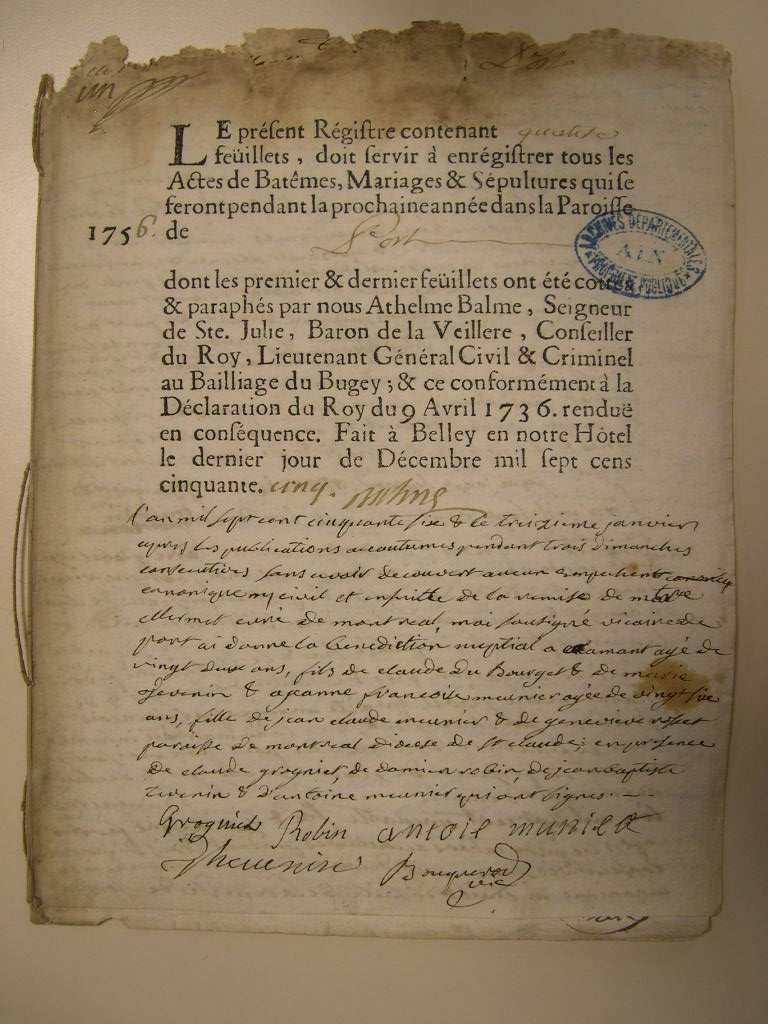 un
LE présent Régistre contenant
feüillets, doit servir à enrégistrer tous les
Actes de Batêmes, Mariages & Sépultures qui se
feront pendant la prochaine année dans la Paroisse
1756. de
Port
ARCHIVES DEPARTEMENTALES
AIN
dont les premier & dernier feüillets ont été cottés
& paraphés par nous Athelme Balme, Seigneur
de Ste. Julie, Baron de la Veillere, Conseiller
du Roy, Lieutenant Général Civil & Criminel
au Bailliage du Bugey; & ce conformément à la
Déclaration du Roy du 9 Avril 1736. renduë
en conséquence. Fait à Belley en notre Hôtel
le dernier jour de Décembre mil sept cens
cinquante. cinq.
l'an mil sept cent cinquante six & le treizieme janvier
apres les publications accoutumes pendant trois dimanches
consecutives sans avoir decouvert aucun empechement
canonique ny civil et ensuitte de la remise de
mermet curé de montreal, moi soussigné vicaire de
port ai donné la benediction nuptial a amant agé de
vingt deux ans, fils de claude Du Bourget & de marie
Tevenin & a jeanne francoise meunier agée de vingt six
ans, fille de jean claude meunier & de genevieve rosset
paroisse de montreal diocese de st claude; en presence
de claude grogniet, de damien robin, de jean baptiste
Tevenin & d'antoine meunier qui ont signes.
Robin antoie munier
Thevenin
vic